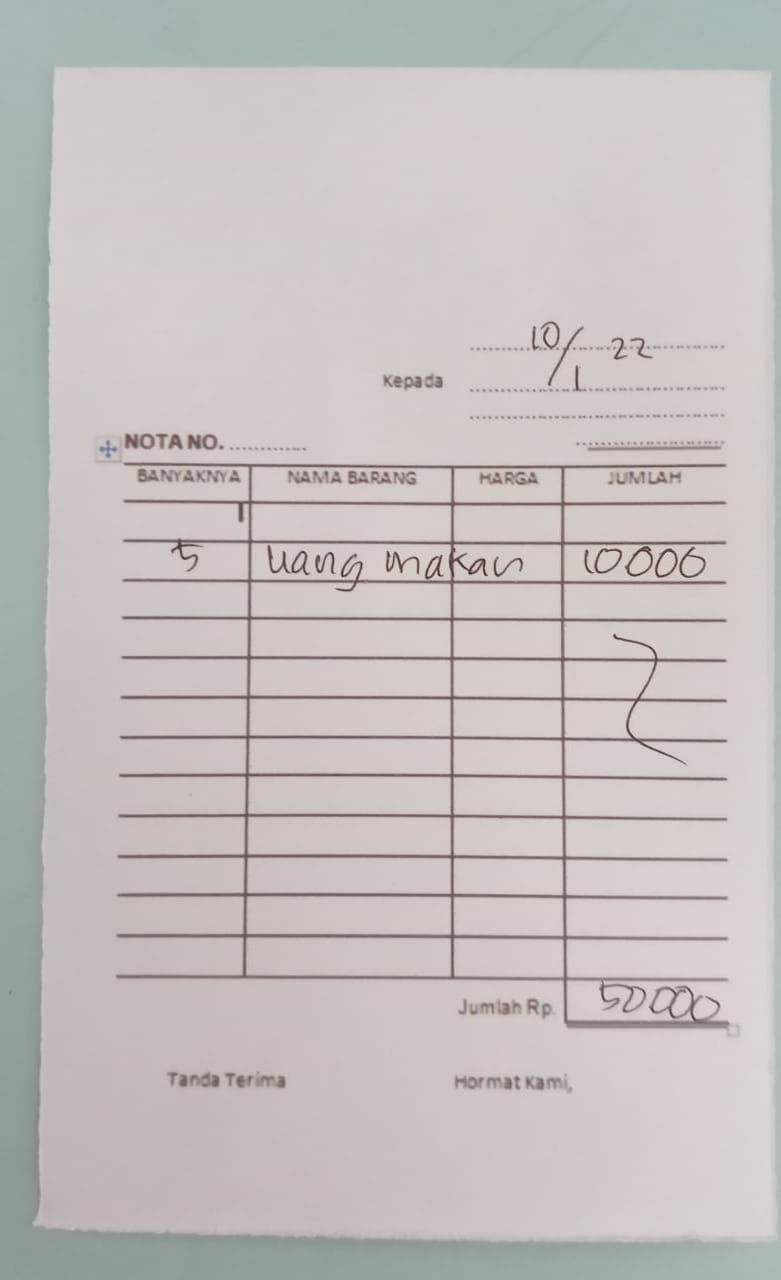 10/1 22
Kepada
NOTA NO. ............
BANYAKNYA NAMA BARANG HARGA JUMLAH
5 uang makan 10000
Jumlah Rp. 50000
Tanda Terima Hormat Kami,